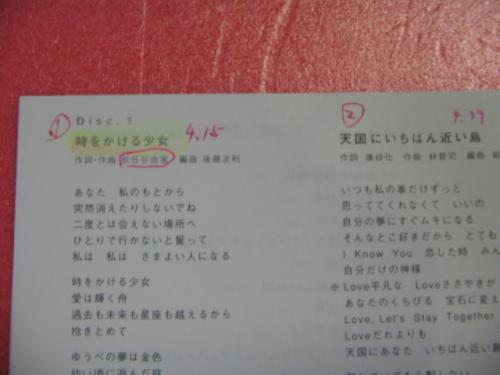 ① 
Disc. 1
時をかける少女 4.15
作詞・作曲 松任谷由実 編曲 後藤次利
あなた 私のもとから
突然消えたりしないでね
二度とは会えない場所へ
ひとりで行かないと誓って
私は 私は さまよい人になる
時をかける少女
愛は輝く舟
過去も未来も星座も越えるから
抱きとめて
ゆうべの夢は金色
幼い頃に遊んだ庭
② 4.39
天国にいちばん近い島
作詞 康珍化 作曲 林哲司 編曲
いつも私の事だけずっと
思っててくれなくて いいの
自分の夢にすぐムキになる
そんなとこ好きだから とても
I Know You 恋した時 みん
自分だけの神様
※Love平凡な Loveささやきが
あなたのくちびる 宝石に変え
Love, Let's Stay Together
Loveだれよりも
天国にあなた いちばん近い島